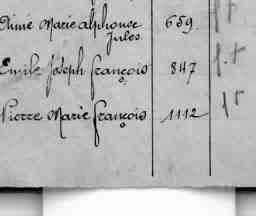 Aimé Marie Alphonse 659
Jules
Emile Joseph François 847
Pierre Marie François 1112